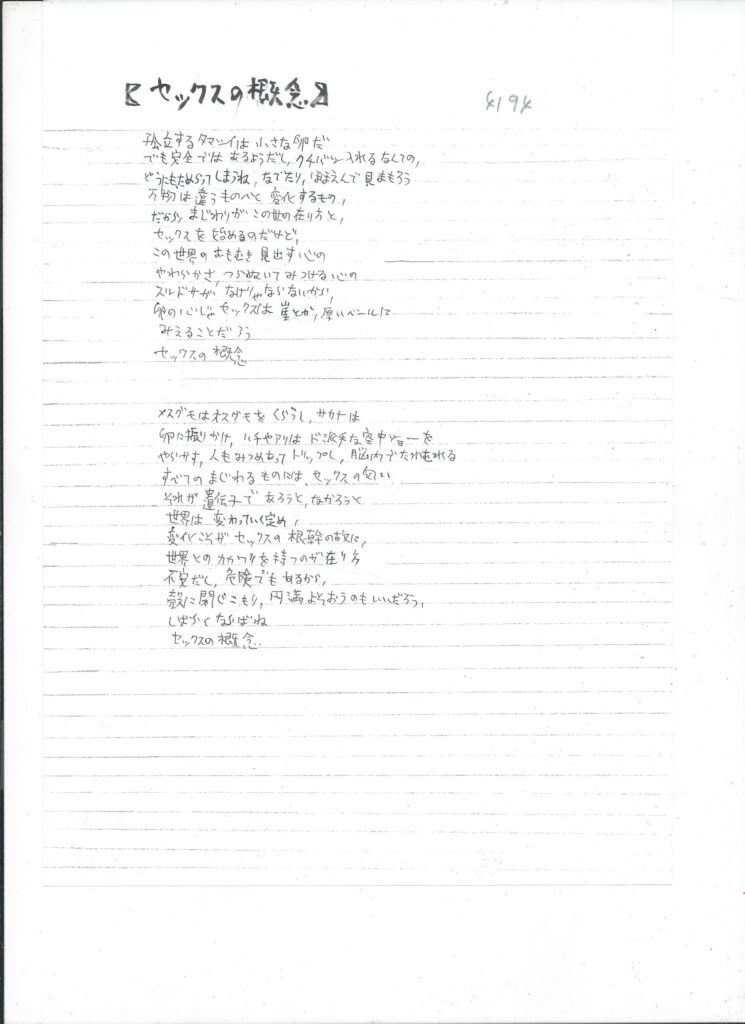 【セックスの概念】
4194
孤立するタマシイは小さな卵だ
でも完全ではあるようだし、クチバシ入れるなんての、
どうにもためらってしまうね、なでたり、ほほえんで見まもろう
万物は違うものへと変化するもの、
だから、まじわりがこの世の在り方と、
セックスを始めるのだけど、
この世界のおもむき見出す心の
やわらかさ、つらぬいてみつける心の
スルドサが、なけりゃならないから、
卵の心じゃセックスは崖とか、厚いベールに
みえることだろう
セックスの概念
メスグモはオスグモをくらうし、サカナは
卵に振りかけ、ハチやアリはド派手な空中ショーを
やらかす、人もみつめあってトリップし、脳内でたわむれる
すべてのまじわるものには、セックスの匂い
それが遺伝子であろうと、なかろうと
世界は変わっていく定め、
変化こそがセックスの根幹の故に、
世界とのカカワリを持つのが在り方
不安だし、危険でもあるから、
殻に閉じこもり、円満よそおうのもいいだろう、
しばらくならばね
セックスの概念